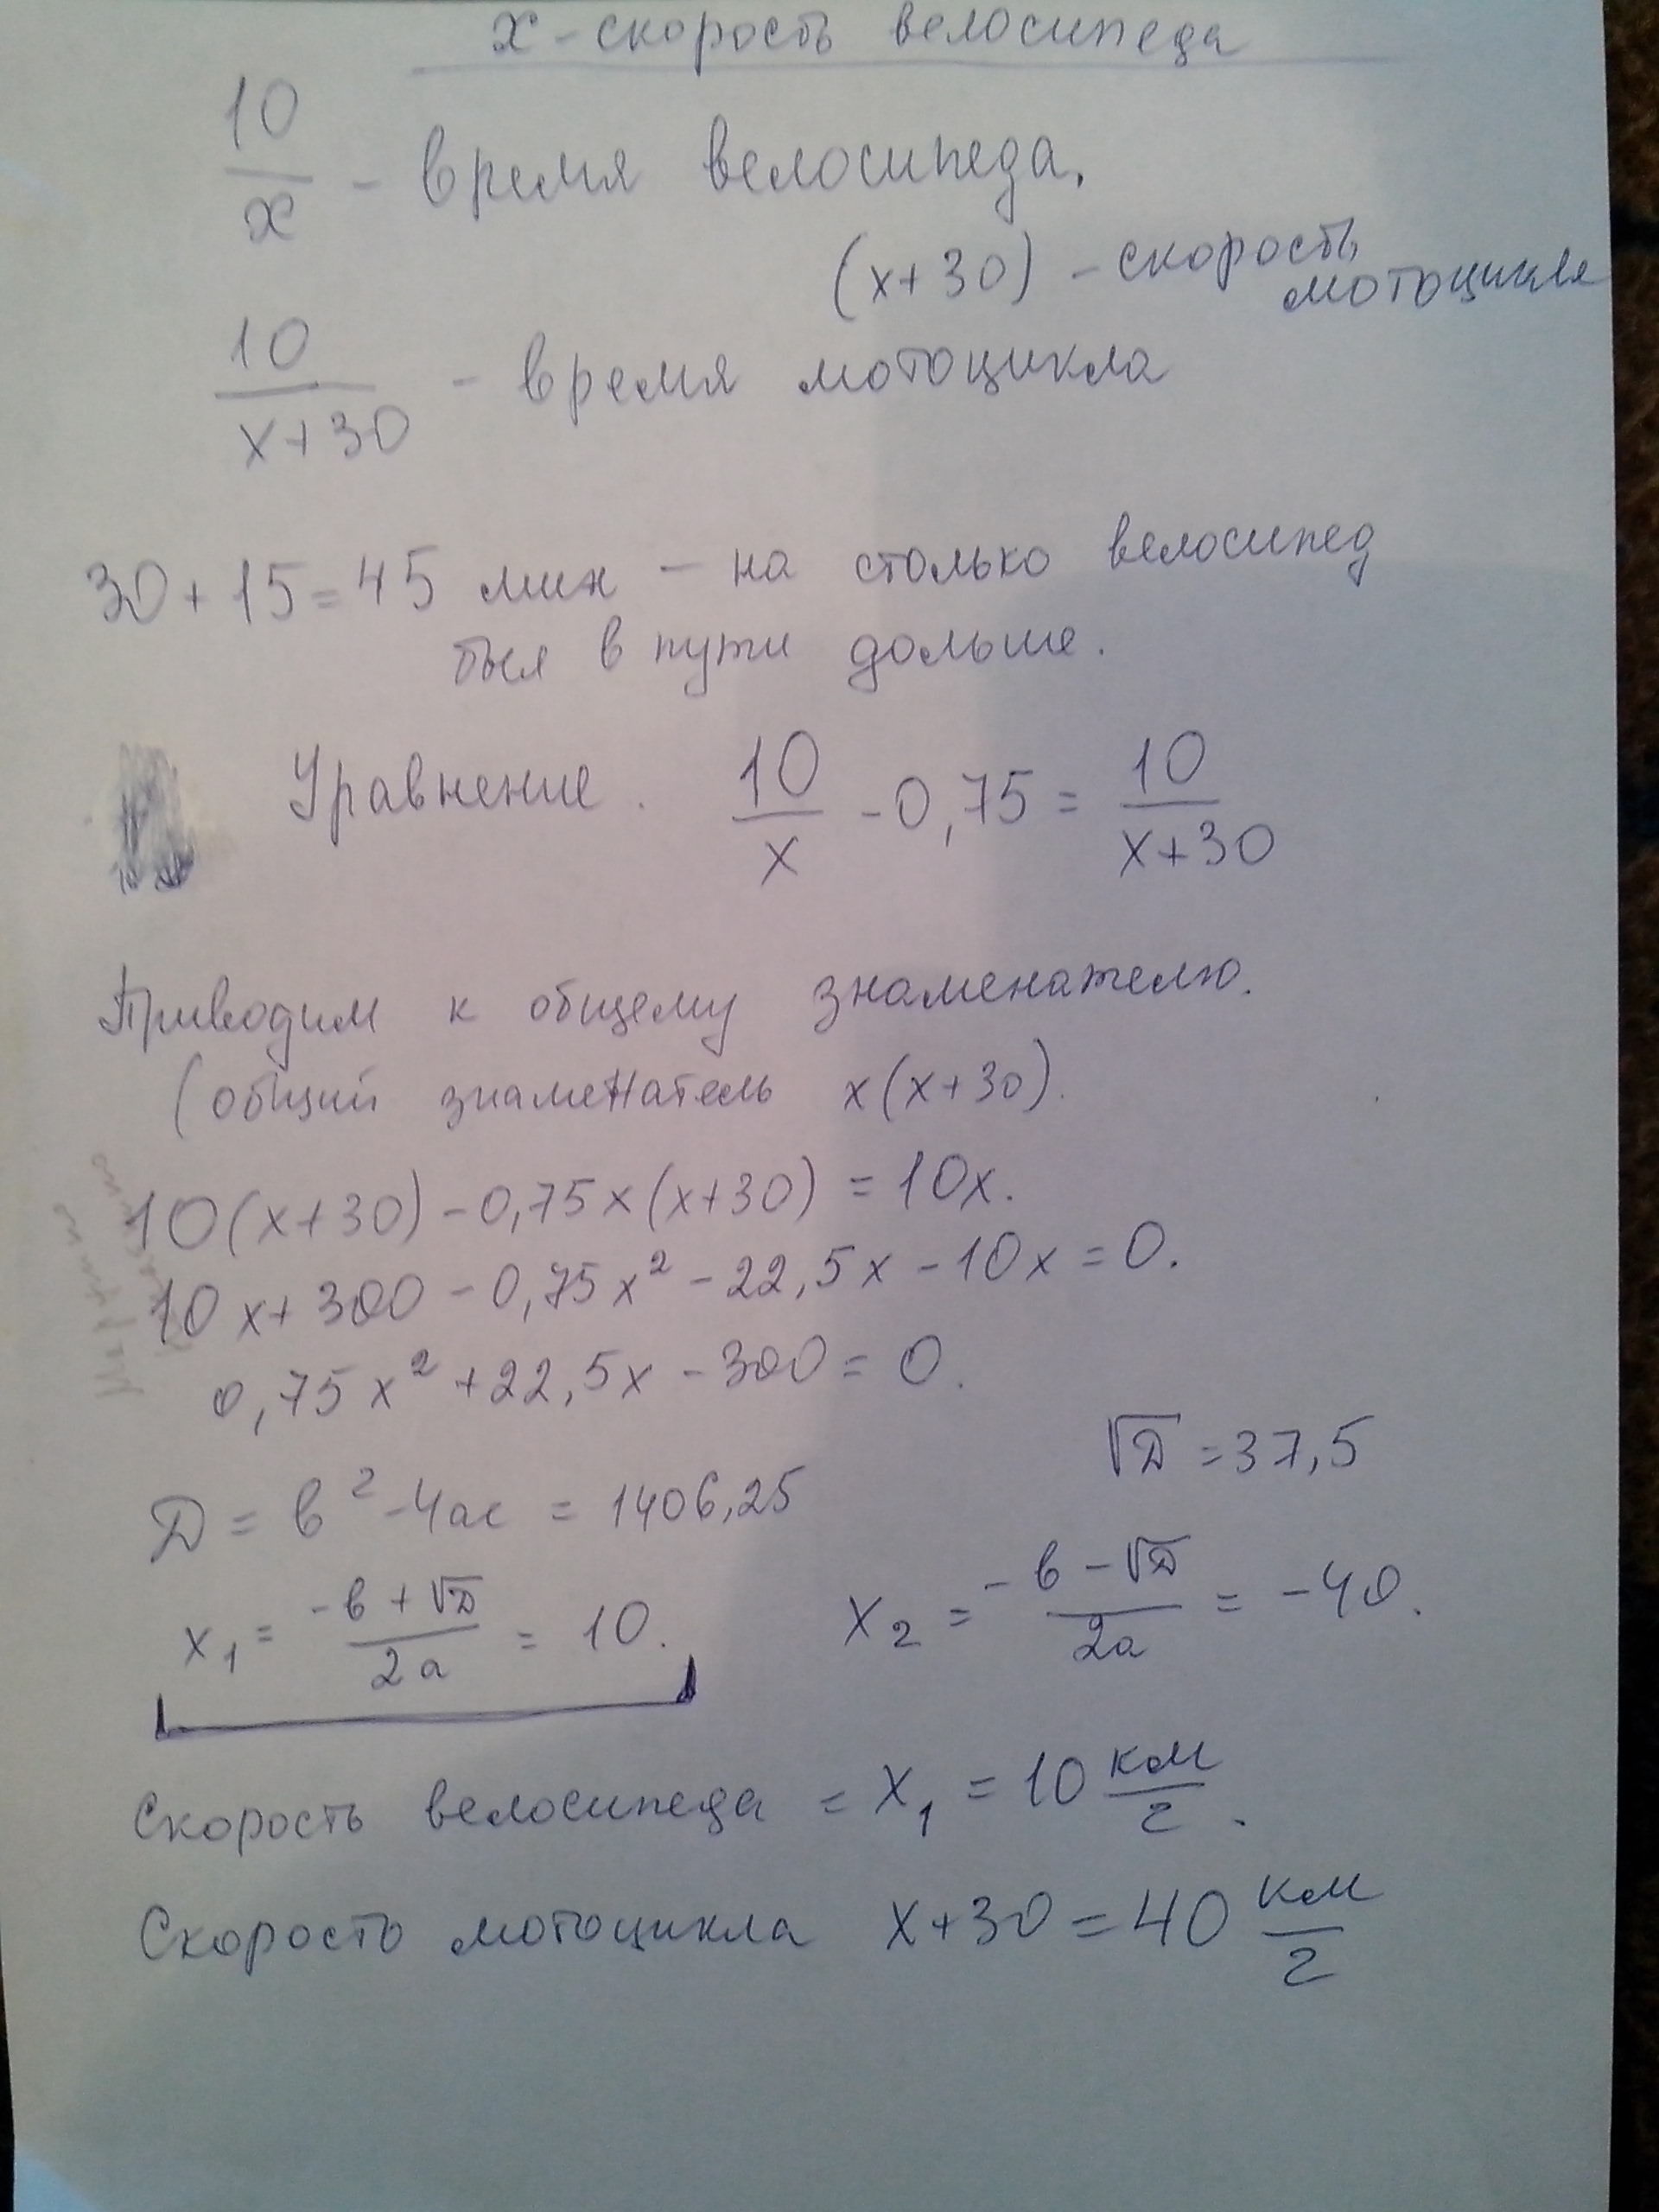 x - скорость велосипеда
10/x - время велосипеда.
(x+30) - скорость
мотоцикла
10/(x+30) - время мотоцикла
30+15=45 мин - на столько велосипед
был в пути дольше.
Уравнение. 10/x - 0,75 = 10/(x+30)
Приводим к общему знаменателю.
(общий знаменатель x(x+30).
10(x+30) - 0,75x(x+30) = 10x.
10x+300 - 0,75x² - 22,5x - 10x = 0.
0,75x² + 22,5x - 300 = 0.
√D = 37,5
D = b² - 4ac = 1406,25
x₁ = (-b+√D)/2a = 10. x₂ = (-b-√D)/2a = -40.
Скорость велосипеда = x₁ = 10 км/г.
Скорость мотоцикла x+30 = 40 км/г